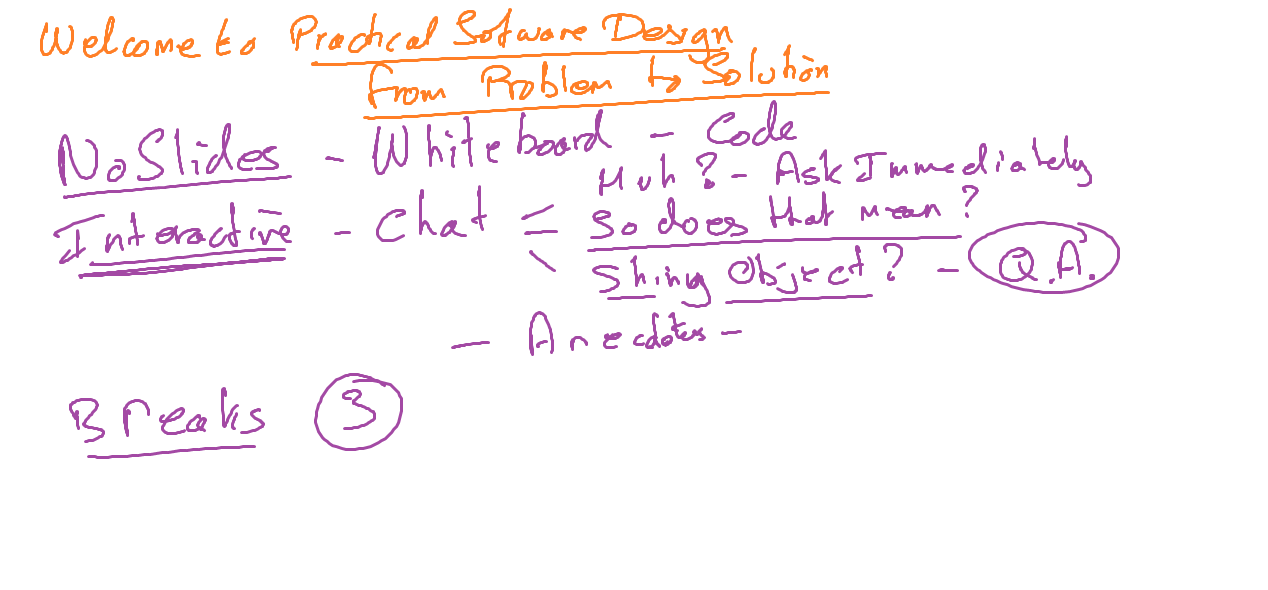 Welcome to Practical Sotware Design
from Problem to Solution
No Slides - Whiteboard - Code
Huh? - Ask Immediately
Interactive - Chat - So does that mean?
Shiny Object? - Q.A.
- Anecdotes -
Breaks 3